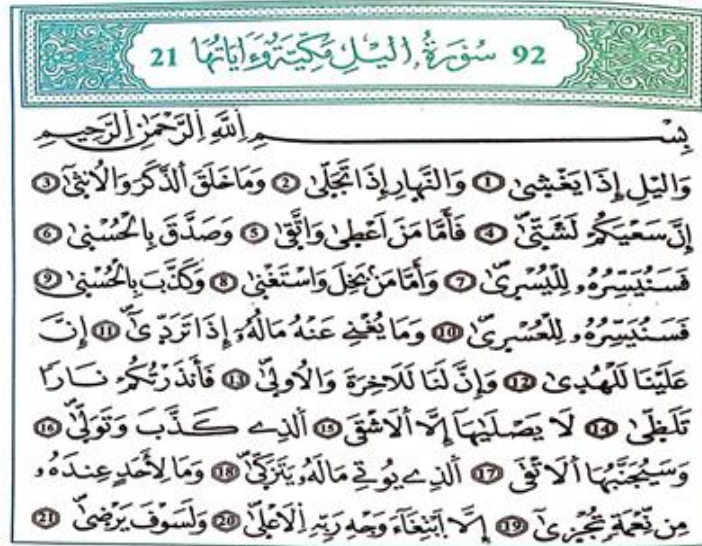 92 سُورَةُ اليْلِ مَكِّيَّةٌ وَءَايَاتُهَا 21
بِسْمِ اِللَّهِ اِلرَّحْمَٰنِ اِلرَّحِيمِ
وَاليْلِ إِذَا يَغْشٜىٰ 1 وَالنَّهارِ إِذَا تَجَلّٜىٰ 2 وَمَا خَلَقَ اَلذَّكَرَ وَالُانثٜىٰٓ 3
إِنَّ سَعْيَكُمْ لَشَتّٜىٰ 4 فَأَمَّا مَنَ اَعْطٜىٰ وَاتَّقٜىٰ 5 وَصَدَّقَ بِالْحُسْنٜىٰ 6
فَسَنُيَسِّرُهُۥ لِلْيُسْرٜىٰ 7 وَأَمَّا مَنۢ بَخِلَ وَاسْتَغْنٜىٰ 8 وَكَذَّبَ بِالْحُسْنٜىٰ 9
فَسَنُيَسِّرُهُۥ لِلْعُسْرٜىٰ 10 وَمَا يُغْنِے عَنْهُ مَالُهُۥٓ إِذَا تَرَدّٜىٰٓ 11 إِنَّ
عَلَيْنَا لَلْهُدٜىٰ 12 وَإِنَّ لَنَا لَلَاخِرَةَ وَالُاولٜىٰ 13 فَأَنذَرْتُكُمْ نَاراً
تَلَظّٜىٰ 14 لَا يَصْلَيٰهَآ إِلَّا اَلَاشْقَى 15 اَلذِے كَذَّبَ وَتَوَلّٜىٰ 16
وَسَيُجَنَّبُهَا اَلَاتْقَى 17 اَلذِے يُوتِے مَالَهُۥ يَتَزَكّٜىٰ 18 وَمَا لِأَحَدٍ عِندَهُۥ
مِن نِّعْمَةٖ تُجْزٜىٰٓ 19 إِلَّا اَبْتِغَآءَ وَجْهِ رَبِّهِ اِلَاعْلٜىٰ 20 وَلَسَوْفَ يَرْضٜىٰ 21